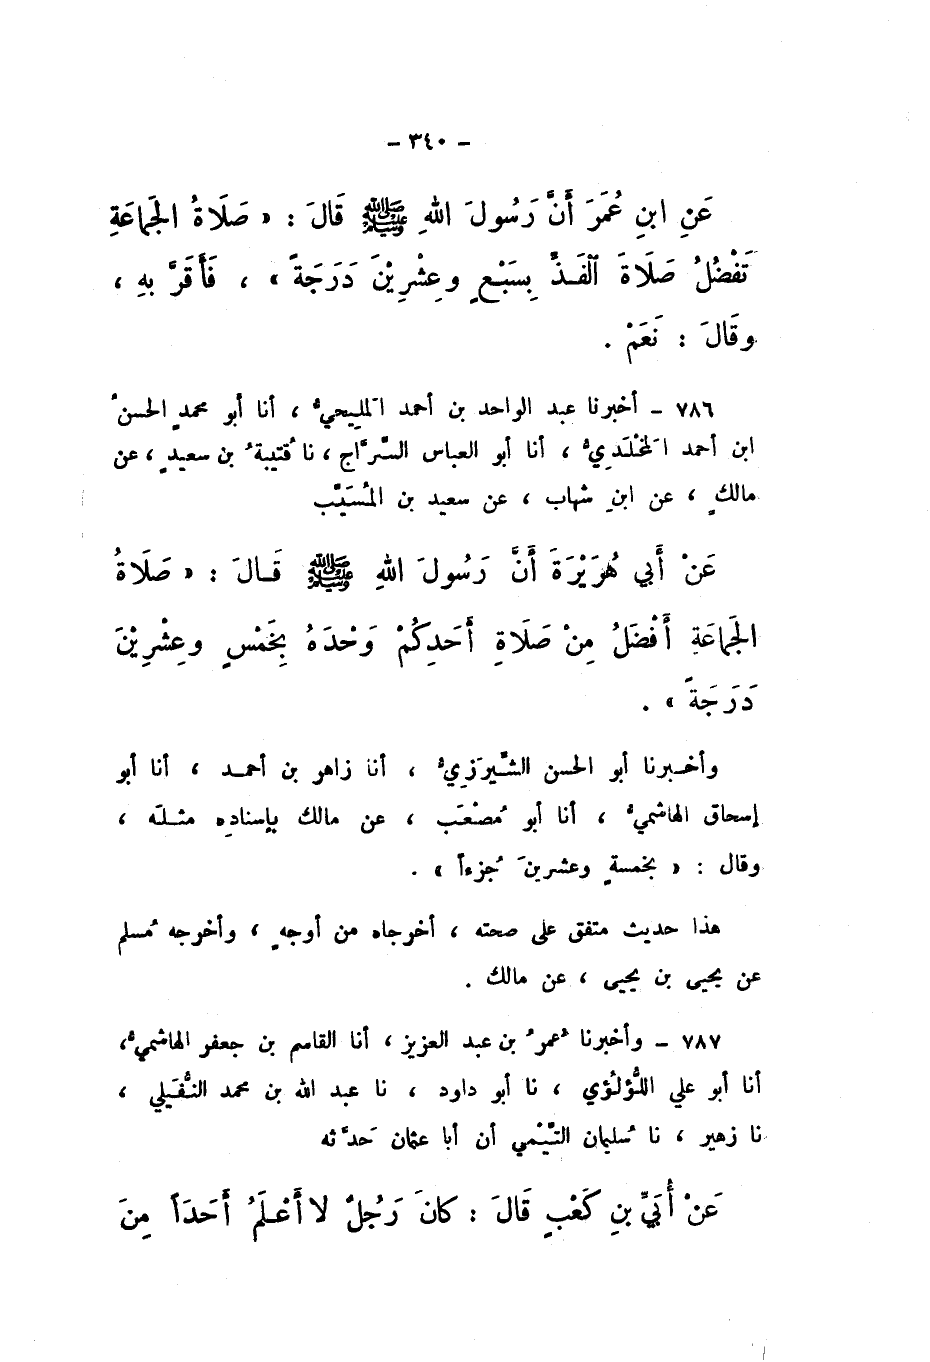 - ٣٤٠ -
عَنِ ابنِ عُمَرَ أَنَّ رَسُولَ اللهِ ﷺ قَالَ : « صَلَاةُ الجَمَاعَةِ
تَفْضُلُ صَلَاةَ ٱلْفَذِّ بِسَبْعٍ وعِشْرِيْنَ دَرَجَةً » ، فَأَقَرَّ بهِ ،
وقَالَ : نَعَمْ .
٧٨٦ - أخبرنا عبد الواحد بن أحمد المَلِيحيُّ ، أنا أبو محمدٍ الحسنُ
ابن أحمد المَخْلَديُّ ، أنا أبو العباس السَّرَّاج ، نا قُتيبةُ بن سعيدٍ ، عن
مالكٍ ، عن ابنِ شهاب ، عن سعيد بن المُسَيَّب
عَنْ أَبي هُرَيْرَةَ أَنَّ رَسُولَ اللهِ ﷺ قَـالَ : « صَلَاةُ
الجَمَاعَةِ أَفْضَلُ مِنْ صَلَاةِ أَحَدِكُمْ وَحْدَهُ بِخَمْسٍ وعِشْرِيْنَ
دَرَجَةً » .
وأخـبرنا أبو الحسن الشَّيرَزيُّ ، أنا زاهر بن أحمـد ، أنا أبو
إسحاق الهاشميُّ ، أنا أبو مُصْعَب ، عن مالك بإسنادِه مثـلَه ،
وقال : « بخمسةٍ وعشرينَ جُزءاً » .
هذا حديث متفق على صحته ، أخرجاه من أوجهٍ ، وأخرجه مُسلم
عن يحيى بن يحيى ، عن مالك .
٧٨٧ - وأخبرنا عُمرُ بن عبد العزيز ، أنا القاسم بن جعفر الهاشميُّ ،
أنا أبو علي اللُّؤلُؤي ، نا أبو داود ، نا عبد الله بن محمد النُّفَيلي ،
نا زهير ، نا سُليمان التَّيْمي أن أبا عثمان حَدَّثه
عَنْ أُبَيِّ بنِ كَعْبٍ قَالَ : كانَ رَجُلٌ لا أَعْلَمُ أَحَدَاً مِنَ